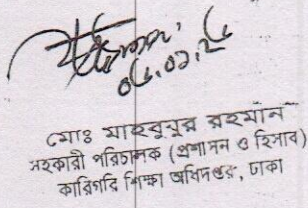 ০৫.০১.২৫
মোঃ মাহবুবুর রহমান
সহকারী পরিচালক (প্রশাসন ও হিসাব)
কারিগরি শিক্ষা অধিদপ্তর, ঢাকা